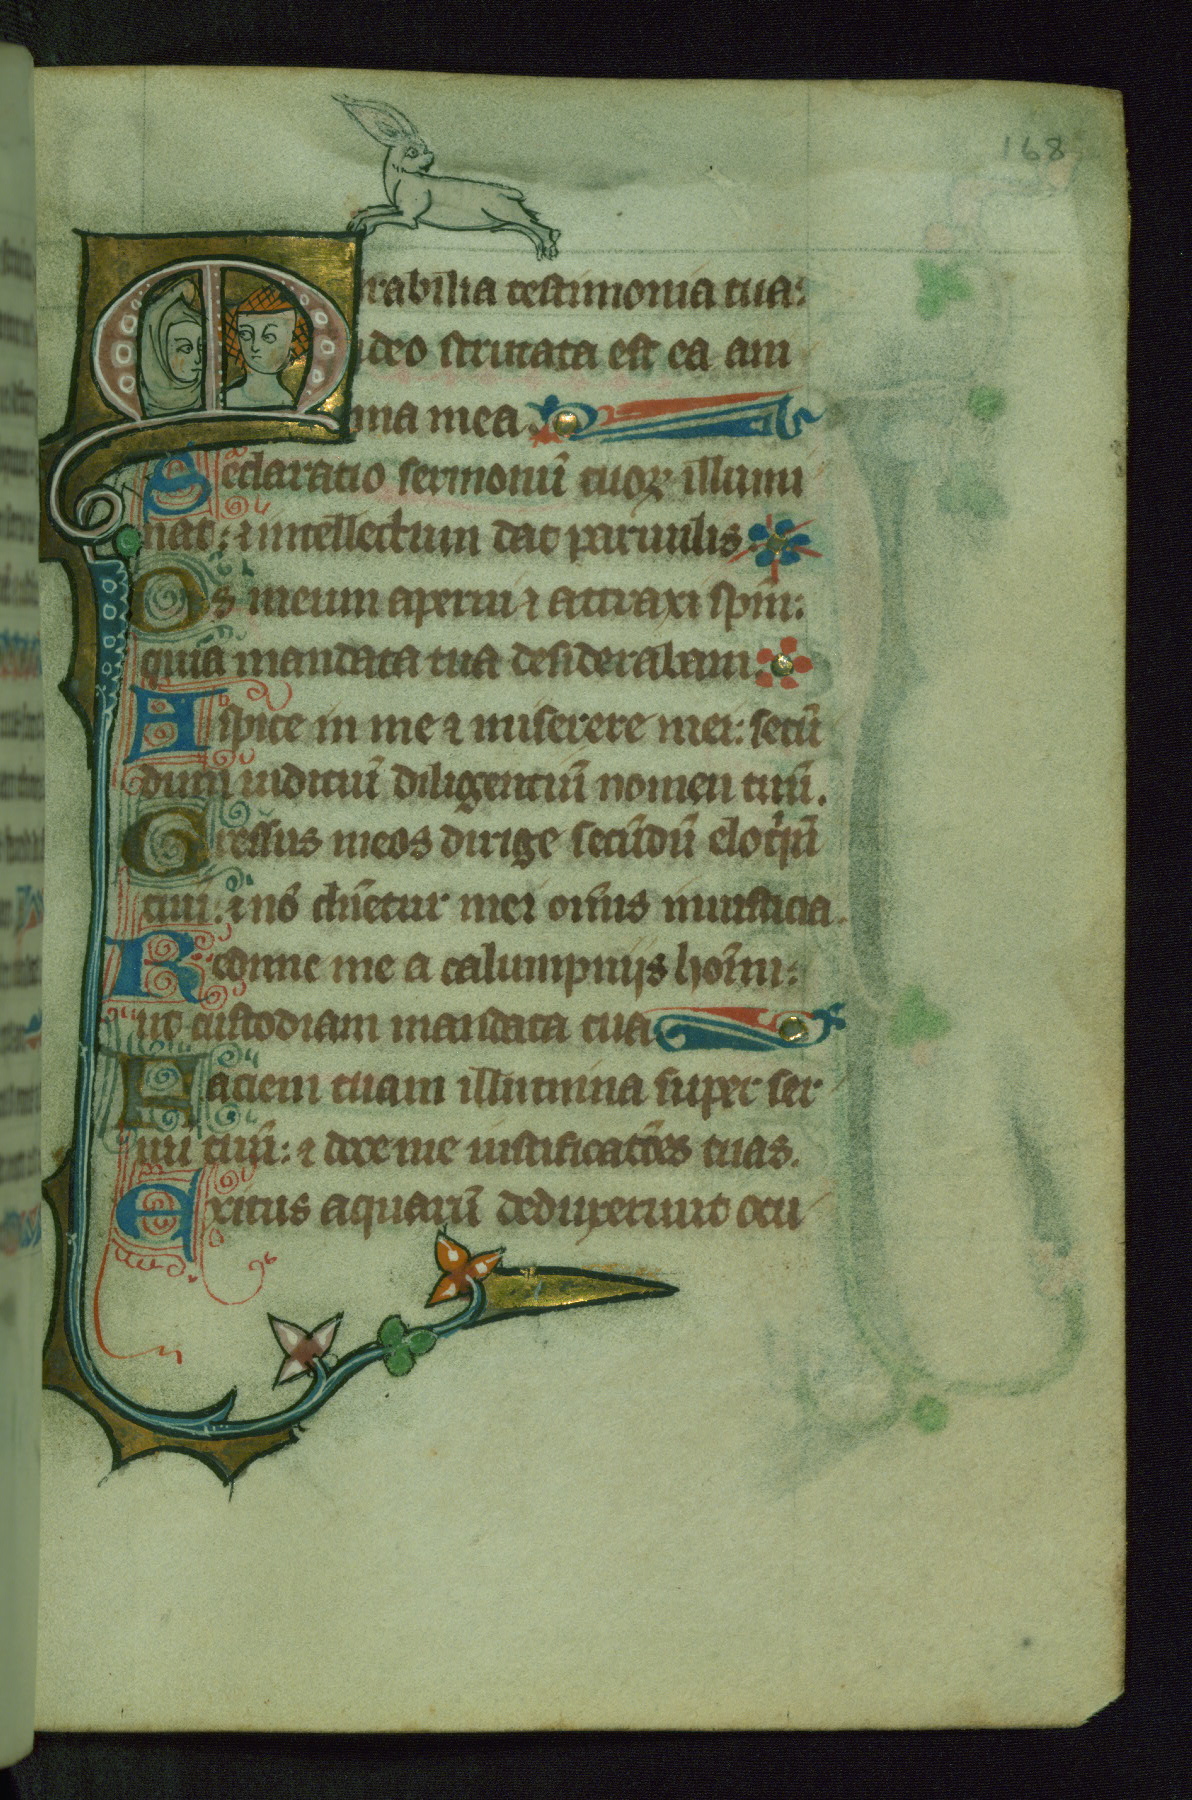 168
Mirabilia testimonia tua:
ideo scrutata est ea ani
ma mea
Declaratio sermonū tuoꝝ illumi
nat: ⁊ intellectum dat paruulis.
Os meum aperui ⁊ attraxi spm̄:
quia mandata tua desiderabam.
Aspice in me ⁊ miserere mei: secū
dum iudiciū diligentiū nomen tuū.
Gressus meos dirige secūdū eloqiū
tuū: ⁊ nō dn̄etur mei om̄is iniusticia.
Redime me a calumpnijs hoīm:
ut custodiam mandata tua
Faciem tuam illumina super ser
uū tuū: ⁊ doce me iustificatōes tuas.
Exitus aquarū deduxerunt ocu